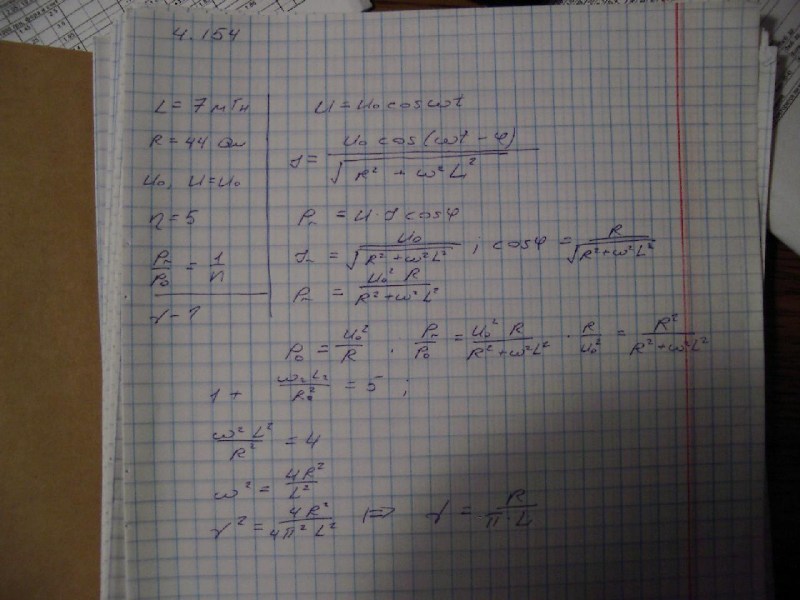 4.154
L = 7 мГн
R = 44 Ом
U₀, U = U₀
η = 5
Pₙ/P₀ = 1/n
γ - ?
U = U₀ cos ωt
I = U₀ cos(ωt - φ) / √(R² + ω²L²)
Pₙ = U · I cos φ
Iₙ = U₀ / √(R² + ω²L²) ; cos φ = R / √(R² + ω²L²)
Pₙ = U₀² R / (R² + ω²L²)
P₀ = U₀²/R . Pₙ/P₀ = U₀² R / (R² + ω²L²) · R/U₀² = R² / (R² + ω²L²)
1 + ω²L²/R² = 5 ;
ω²L²/R² = 4
ω² = 4R²/L²
γ² = 4R²/4π²L² ⟹ γ = R/π·L